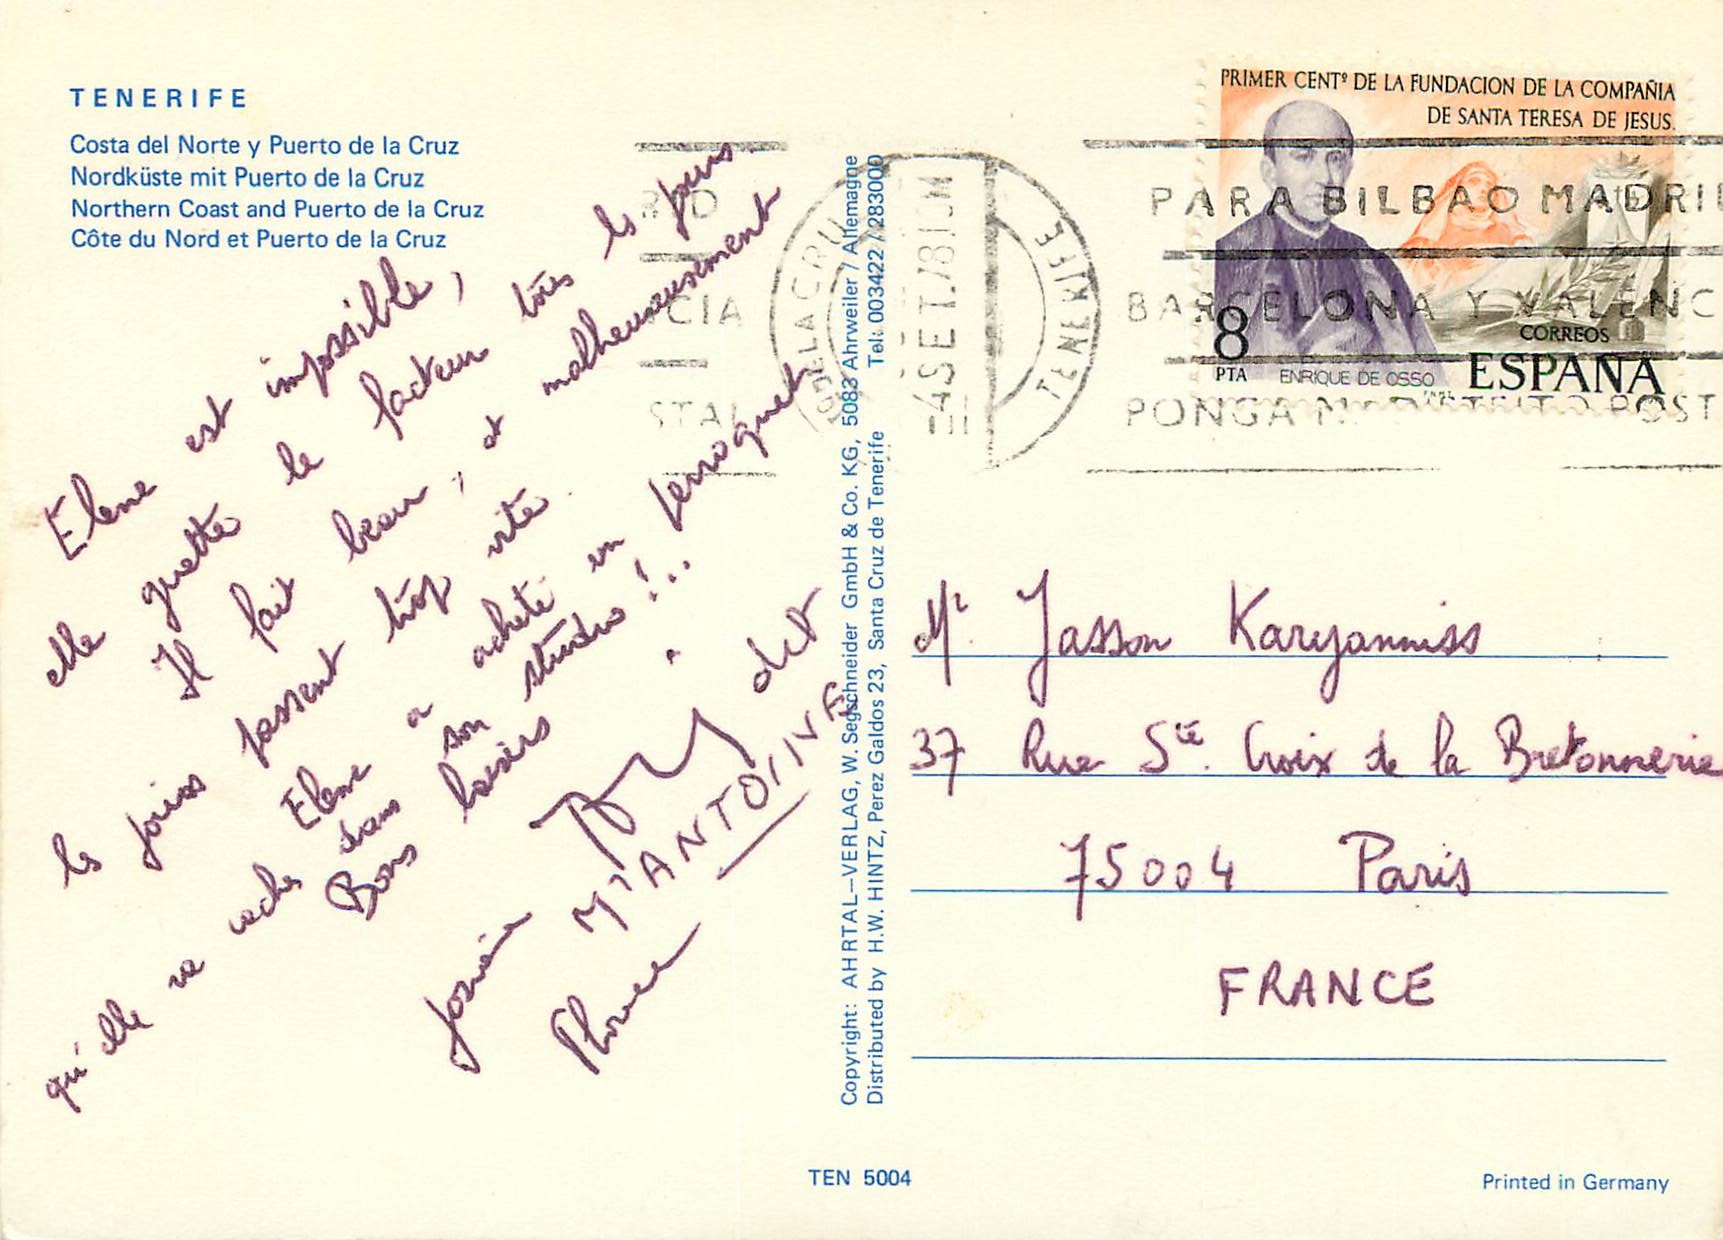 TENERIFE
Costa del Norte y Puerto de la Cruz
Nordküste mit Puerto de la Cruz
Northern Coast and Puerto de la Cruz
Côte du Nord et Puerto de la Cruz
Elene est impossible,
elle guette le facteur tous les jours.
Il fait beau, et malheureusement
les jours passent trop vite.
Elene a acheté un perroquet
qu'elle va cacher dans son studio!..
Bons baisers
dit
M'ANTOINE
Josiane
Florence
Copyright: AHRTAL-VERLAG, W. Segschneider GmbH & Co. KG, 5083 Ahrweiler / Allemagne
Distributed by H.W. HINTZ, Perez Galdos 23, Santa Cruz de Tenerife Tel: 003422 / 283000
PRIMER CENTº DE LA FUNDACION DE LA COMPAÑIA
DE SANTA TERESA DE JESUS.
8
PTA
ENRIQUE DE OSSO
CORREOS
ESPAÑA
DE LA CRUZ
4 SET. 78
TENERIFE
PARA BILBAO MADRI
BARCELONA Y VALENC
PONGA POST
CIA
STAL
Mr. Jasson Karyanniss
37 Rue Ste. Croix de la Bretonnerie
75004 Paris
FRANCE
TEN 5004
Printed in Germany